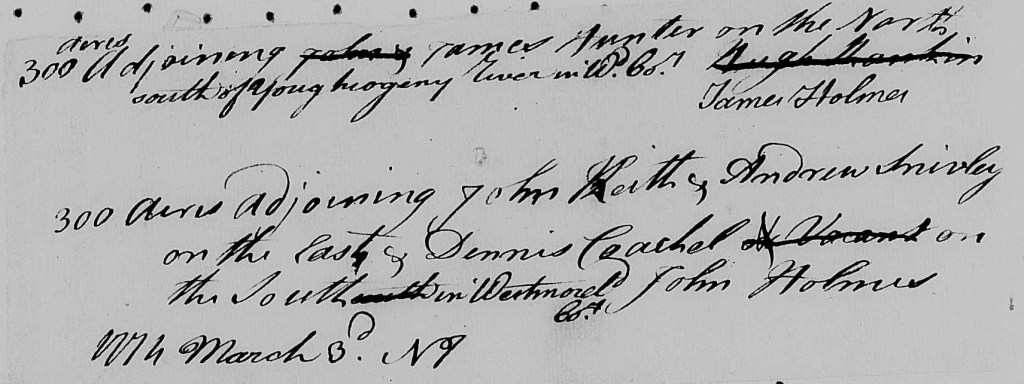 300 acres Adjoining John & James Hunter on the North
south of Youghiogeny River in Wd. Co.ty Hugh Rankin
James Holmes
300 Acres Adjoining John Keith & Andrew Snivley
on the East & Dennis Coachel on Vacant on
the South south in Westmoreld Co.ty John Holmes
1774 March 3d. N 9